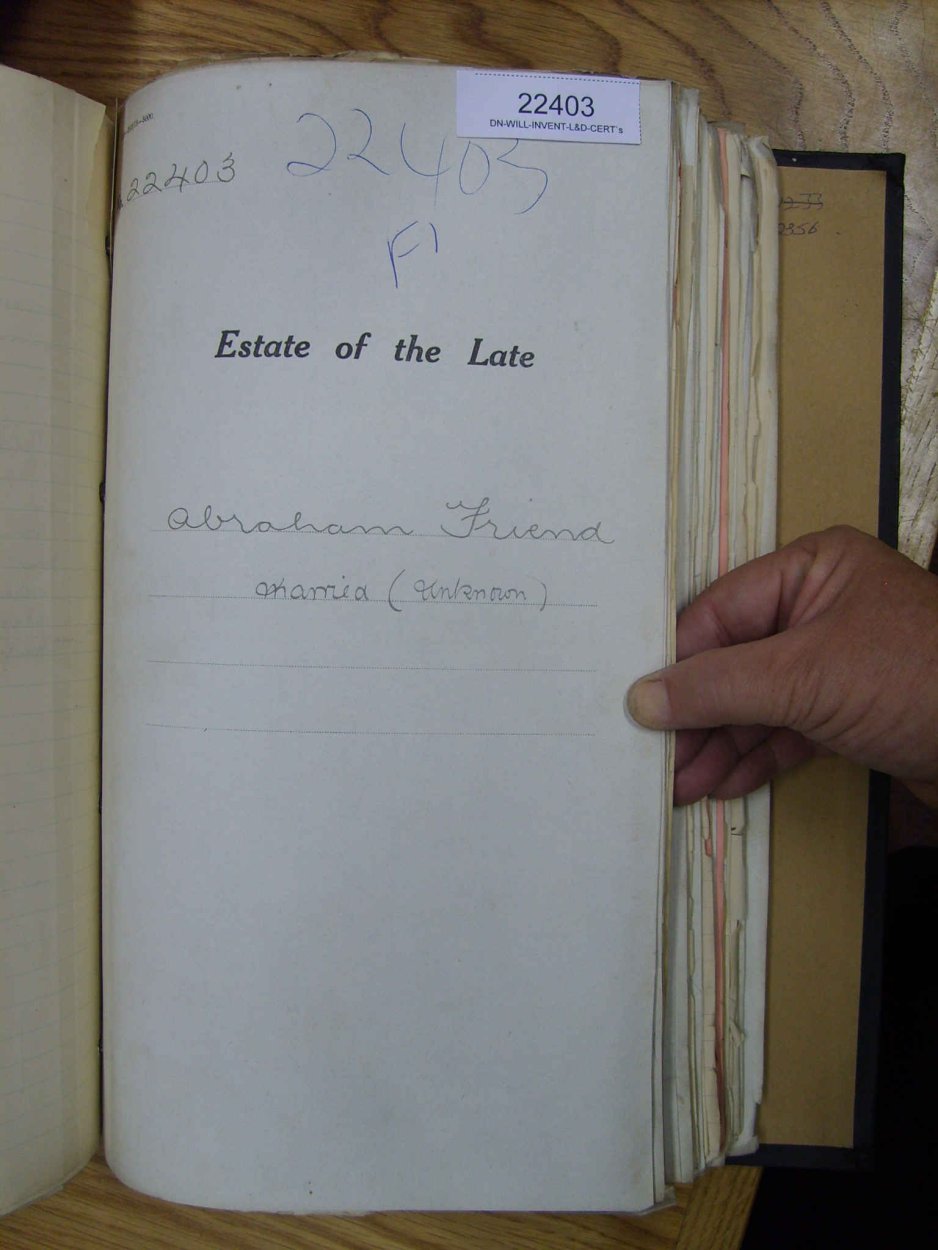 22403
DN-WILL-INVENT-L&D-CERT's
22403
22403
F1
Estate of the Late
Abraham Friend
Married (Unknown)
2356